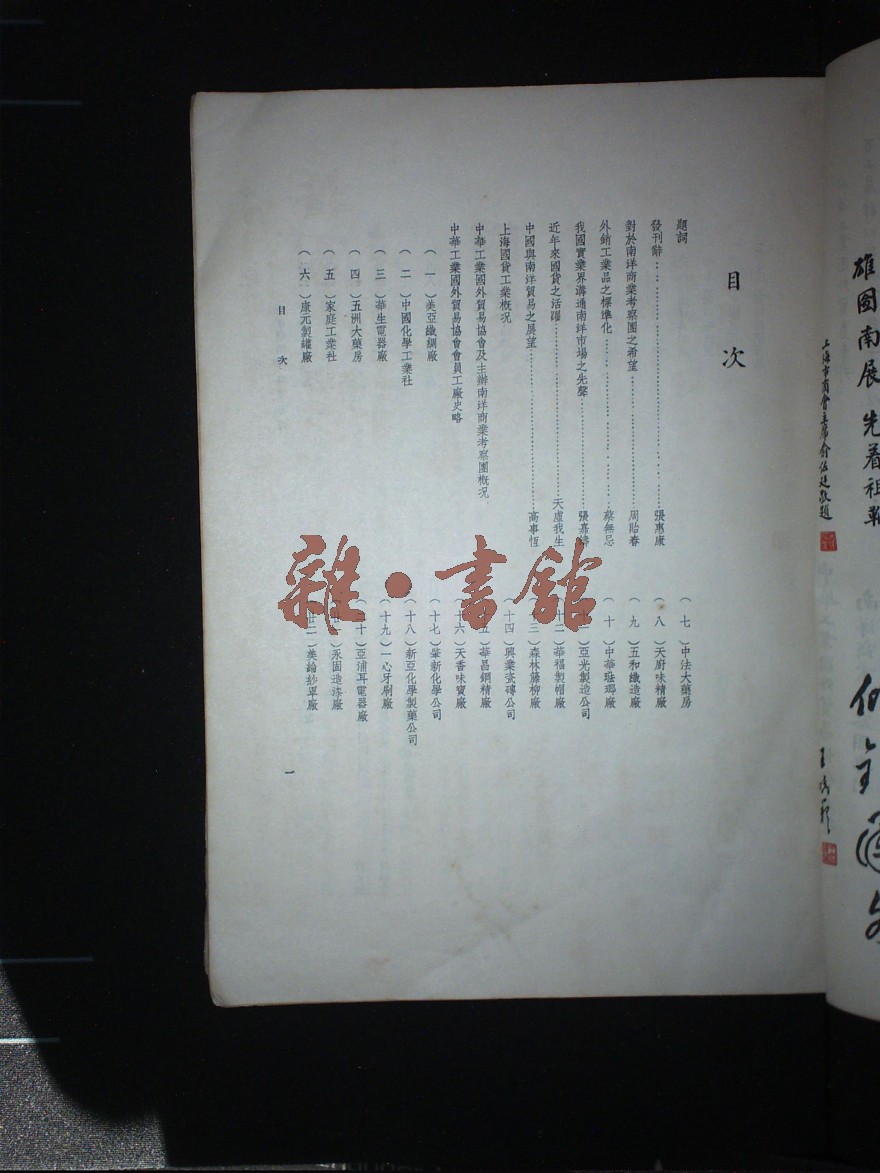 雄圖南展 先着祖鞭
上海市商會主席俞佐廷敬題
目次
題詞
發刊辭……張惠康
對於南洋商業考察團之希望……周貽春
外銷工業品之標準化……蔡無忌
我國實業界溝通南洋市場之先聲……張嘉鑄
近年來國貨之活躍……天虛我生
中國與南洋貿易之展望……高事恆
上海國貨工業概況
中華工業國外貿易協會及主辦南洋商業考察團概況
中華工業國外貿易協會會員工廠史略
(一)美亞織綢廠
(二)中國化學工業社
(三)華生電器廠
(四)五洲大藥房
(五)家庭工業社
(六)康元製罐廠
(七)中法大藥房
(八)天廚味精廠
(九)五和織造廠
(十)中華琺瑯廠
(十一)亞光製造公司
(十二)華福製帽廠
(十三)森林藤柳廠
(十四)興業瓷磚公司
(十五)華昌鋼精廠
(十六)天香味寶廠
(十七)肇新化學公司
(十八)新亞化學製藥公司
(十九)一心牙刷廠
(二十)亞浦耳電器廠
(廿一)永固造漆廠
(廿二)美綸紗罩廠
目次
一
雜·書館